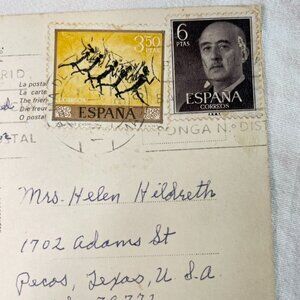 3,50
PTAS
CORREOS
ESPAÑA
6
PTAS
ESPAÑA
CORREOS
La postal
La carte
The frien
Die freu
O postal
PONGA N.º DIST
Mrs. Helen Hildreth
1702 Adams St
Pecos, Texas, U S. A.